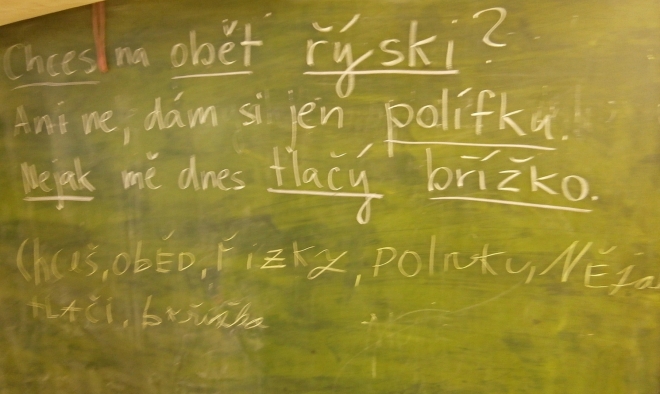 Chces na obět řýski?
Ani ne, dám si jen polífku.
Nejak mě dnes tlačý břížko.
Chceš, oběD, řízky, polívku, NĚja
tLAčí, břížko